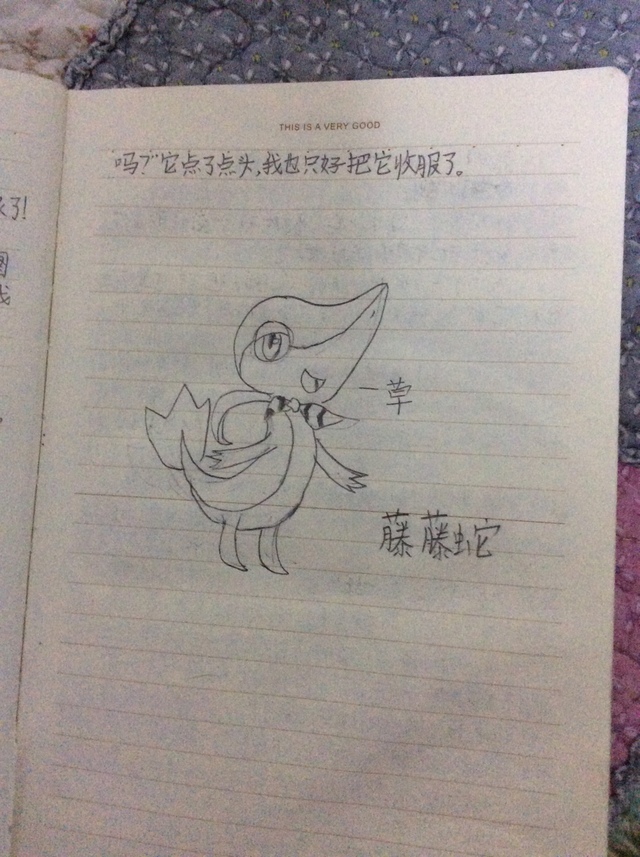 THIS IS A VERY GOOD
吗？”它点了点头,我也只好把它收服了。
了!
草
藤藤蛇